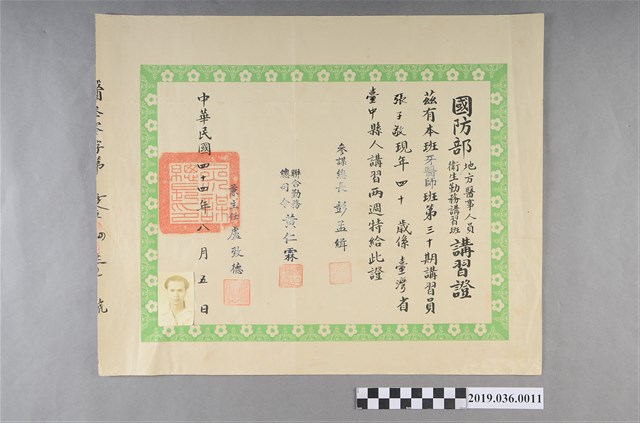 國防部地方醫事人員衛生勤務講習班講習證
茲有本班牙醫師班第三十期講習員
張子敬現年四十歲係臺灣省
臺中縣人講習兩週特給此證
參謀總長彭孟緝
聯合勤務總司令黃仁霖
兼主任盧致德
中華民國四十四年八月五日
2019.036.0011